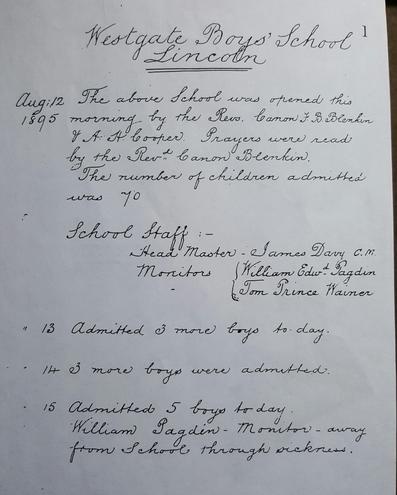 1
Westgate Boys' School
Lincoln
Aug: 12 The above School was opened this
1895 morning by the Revs. Canon F B Blenkin
& A. H Cooper. Prayers were read
by the Revd. Canon Blenkin.
The number of children admitted
was 70
School Staff :-
Head Master - James Davy C.M.
Monitors { William Edwd. Pagdin
Tom Prince Wainer
" 13 Admitted 3 more boys to-day.
" 14 3 more boys were admitted.
" 15 Admitted 5 boys to day.
William Pagdin - Monitor - away
from School through sickness.